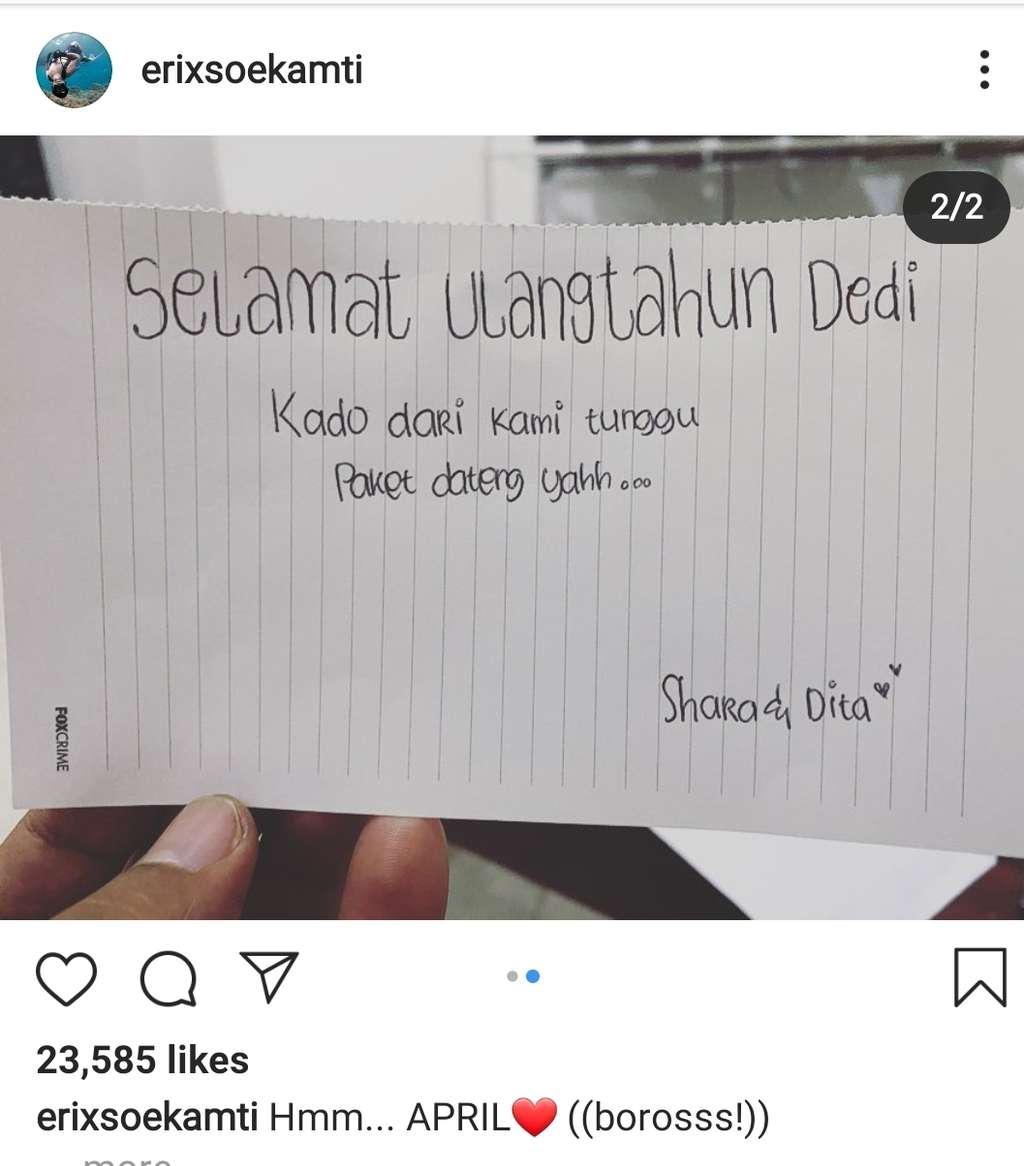 erixsoekamti
2/2
Selamat Ulangtahun Dedi
Kado dari kami tunggu
Paket dateng yahh...
Shara & Dita
FOXCRIME
23,585 likes
erixsoekamti Hmm... APRIL❤️ ((borosss!))
more